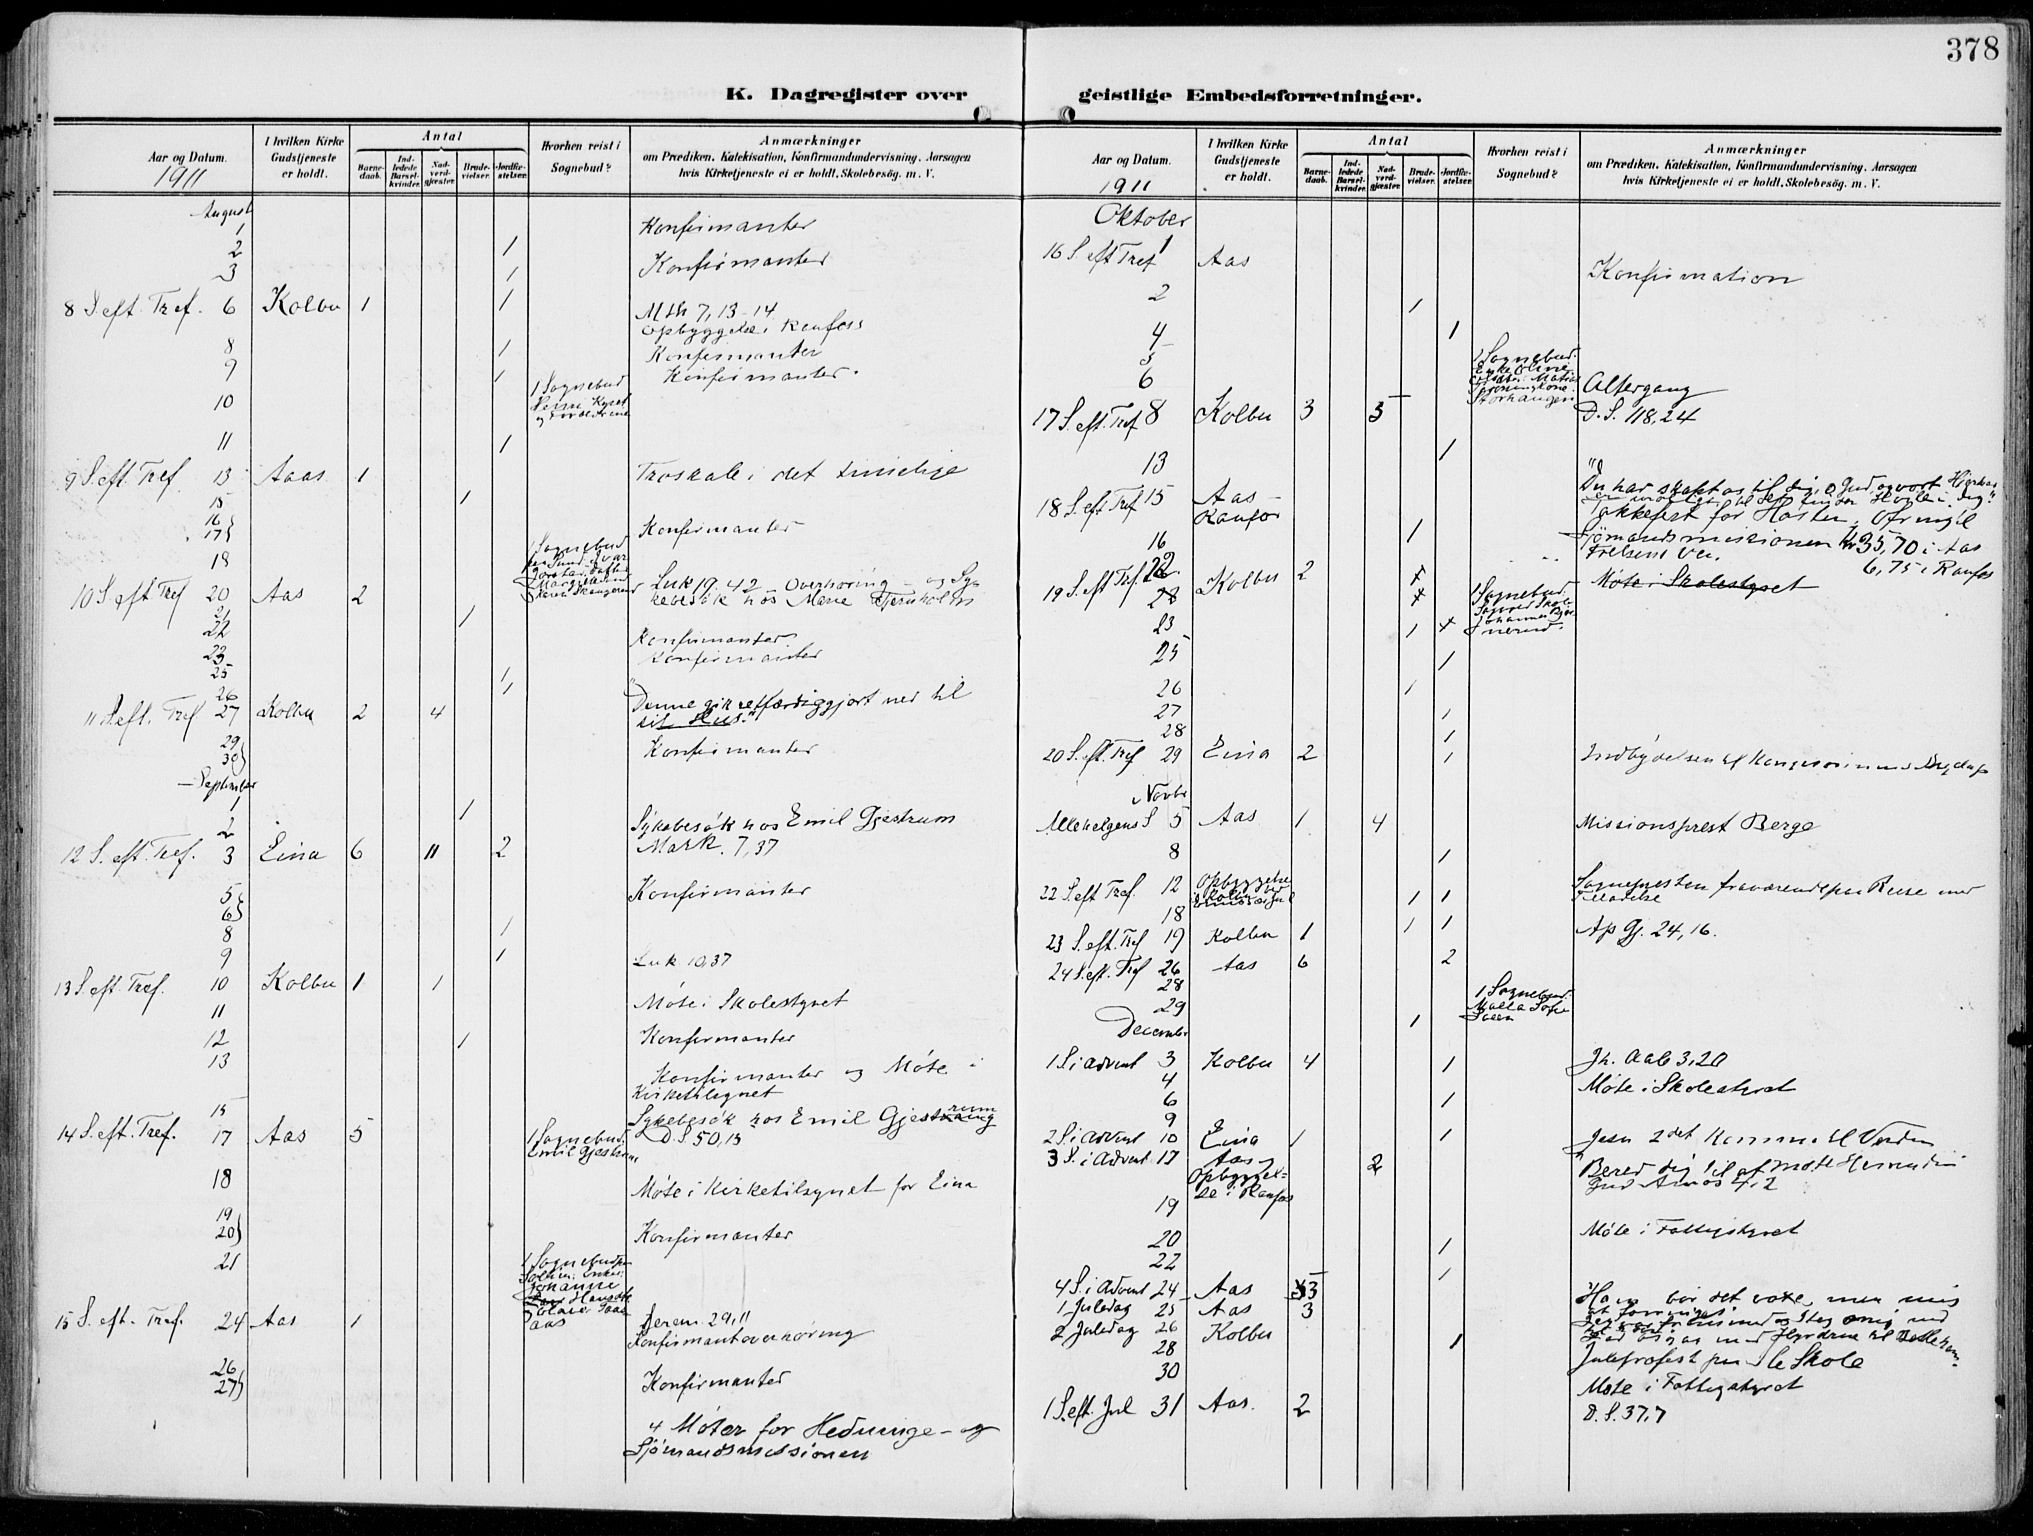 378
K. Dagregister over
geistlige Embedsforretninger.
Aar og Datum.
1911
I hvilken Kirke Gudstjeneste er holdt.
Antal
Barnedaab.
Indledede Barselkvinder.
Nadverdgjæster.
Brudevielser.
Jordfæstelser.
Hvorhen reist i Sognebud?
Anmærkninger
om Prædiken, Katekisation, Konfirmandundervisning, Aarsagen
hvis Kirketjeneste ei er holdt, Skolebesøg. m. V.
August
1 Konfirmanter
2 1
3 1 Konfirmanter
8 S. eft. Tref. 6 Kolbu 1 1 Mth 7, 13-14
Opbyggelse i
8 1 Konfirmanter
9 1 Konfirmanter
10 1 Sognebud
11 1
9 S. eft. Tref 13 Aas 1 Troskab i det timelige
15 1
16
17 Konfirmanter
18 1 Sognebud
10 S eft Tref 20 Aas 2 Luk 19, 42 Overhøring - og Sy-
kebesøk hos Marie
21 1
22 Konfirmanter
23 Konfirmanter
25 1
26 1
11 S. eft. Tref 27 Kolbu 2 4 "Denne gik retfærdiggjort ned til
sit Hus"
29
30 Konfirmanter
September
1 1
2 Sykebesøk hos Emil Gjestrum
12 S. eft. Tref. 3 Eina 6 11 2 Mark. 7, 37
5
6 Konfirmanter
8 1
9 1
13 S eft. Tref. 10 Kolbu 1 1 Luk 10,37
11 Møte i Skolestyret
12 1 Konfirmanter
13 Konfirmanter og Møte i
Kirketilsynet
15 Sykebesøk hos Emil Gjestrum
14 S. eft. Tref. 17 Aas 5 1 Sognebud D. S 50,15
Emil Gjestrum
18 Møte i Kirketilsynet for Eina
19
20 Konfirmanter
21 1 Sognebud
Johanne
15 S. eft. Tref. 24 Aas 1 Jerem. 29,11
Konfirmantoverhøring
26
27 Konfirmanter
4 Møter for Hedninge- og
Sjømandsmissionen
Aar og Datum.
1911
I hvilken Kirke Gudstjeneste er holdt.
Antal
Barnedaab.
Indledede Barselkvinder.
Nadverdgjæster.
Brudevielser.
Jordfæstelser.
Hvorhen reist i Sognebud?
Anmærkninger
om Prædiken, Katekisation, Konfirmandundervisning, Aarsagen
hvis Kirketjeneste ei er holdt, Skolebesøg. m. V.
Oktober
16 S eft Tref 1 Aas Konfirmation
2 1
4 1
5 1 Sognebud
6 Storhaugen Altergang
17 S. eft. Tref 8 Kolbu 3 3 D. S. 118,24
13 1
18 S. eft Tref 15 Aas - "Du har skapt os til dig, o Gud, og vort Hjerte
Takkefest for Høsten. Ofring til
16 1 Sjømandsmissionen kr 35,70 i Aas
Frelsens Vei. 6,75 i
19 S. eft Tref. 22 Kolbu 2 Møte i Skolestyret
1 Sognebud
23 1
25 1
26 1
27 1
28 1
20 S. eft. Tref 29 Eina 2 1 Indbydelsen til Kongesønnens Bryllup
Novbr
Allehelgens S 5 Aas 1 4 Missionsprest Berge
8 1
22 S. eft Tref. 12 Opbyggelse 1 1 Sognepresten fraværende paa Reise med
Tilladelse
18 1 1
23 S. eft. Tref 19 Kolbu 1 Ap Gj. 24, 16.
24 S. eft. Tref 26 Aas 6 2
28 1 Sognebud
29 1
December
1 S i Advent 3 Kolbu 4 1 Jh. Aab 3,20
4 Møte i Skolestyret
6 1
9
2 S. i Advent 10 Eina 1 1 Jesu 2det Komme til Verden
3 S. i Advent 17 Aas - 2 "Bered dig til at møte Herren din
Opbyggel- Gud Amos 4,2
se i
19 Møte i Fattigstyret
20 1
22 1
4 S. i Advent 24 Aas 3 Ham bør det vokse, men mig
at forringes
1 Juledag 25 Aas 3
2 Juledag 26 Kolbu
28 1 Skole
30 Møte i Fattigstyret
1 S. eft. Jul 31 Aas. 2 D. S. 37,7